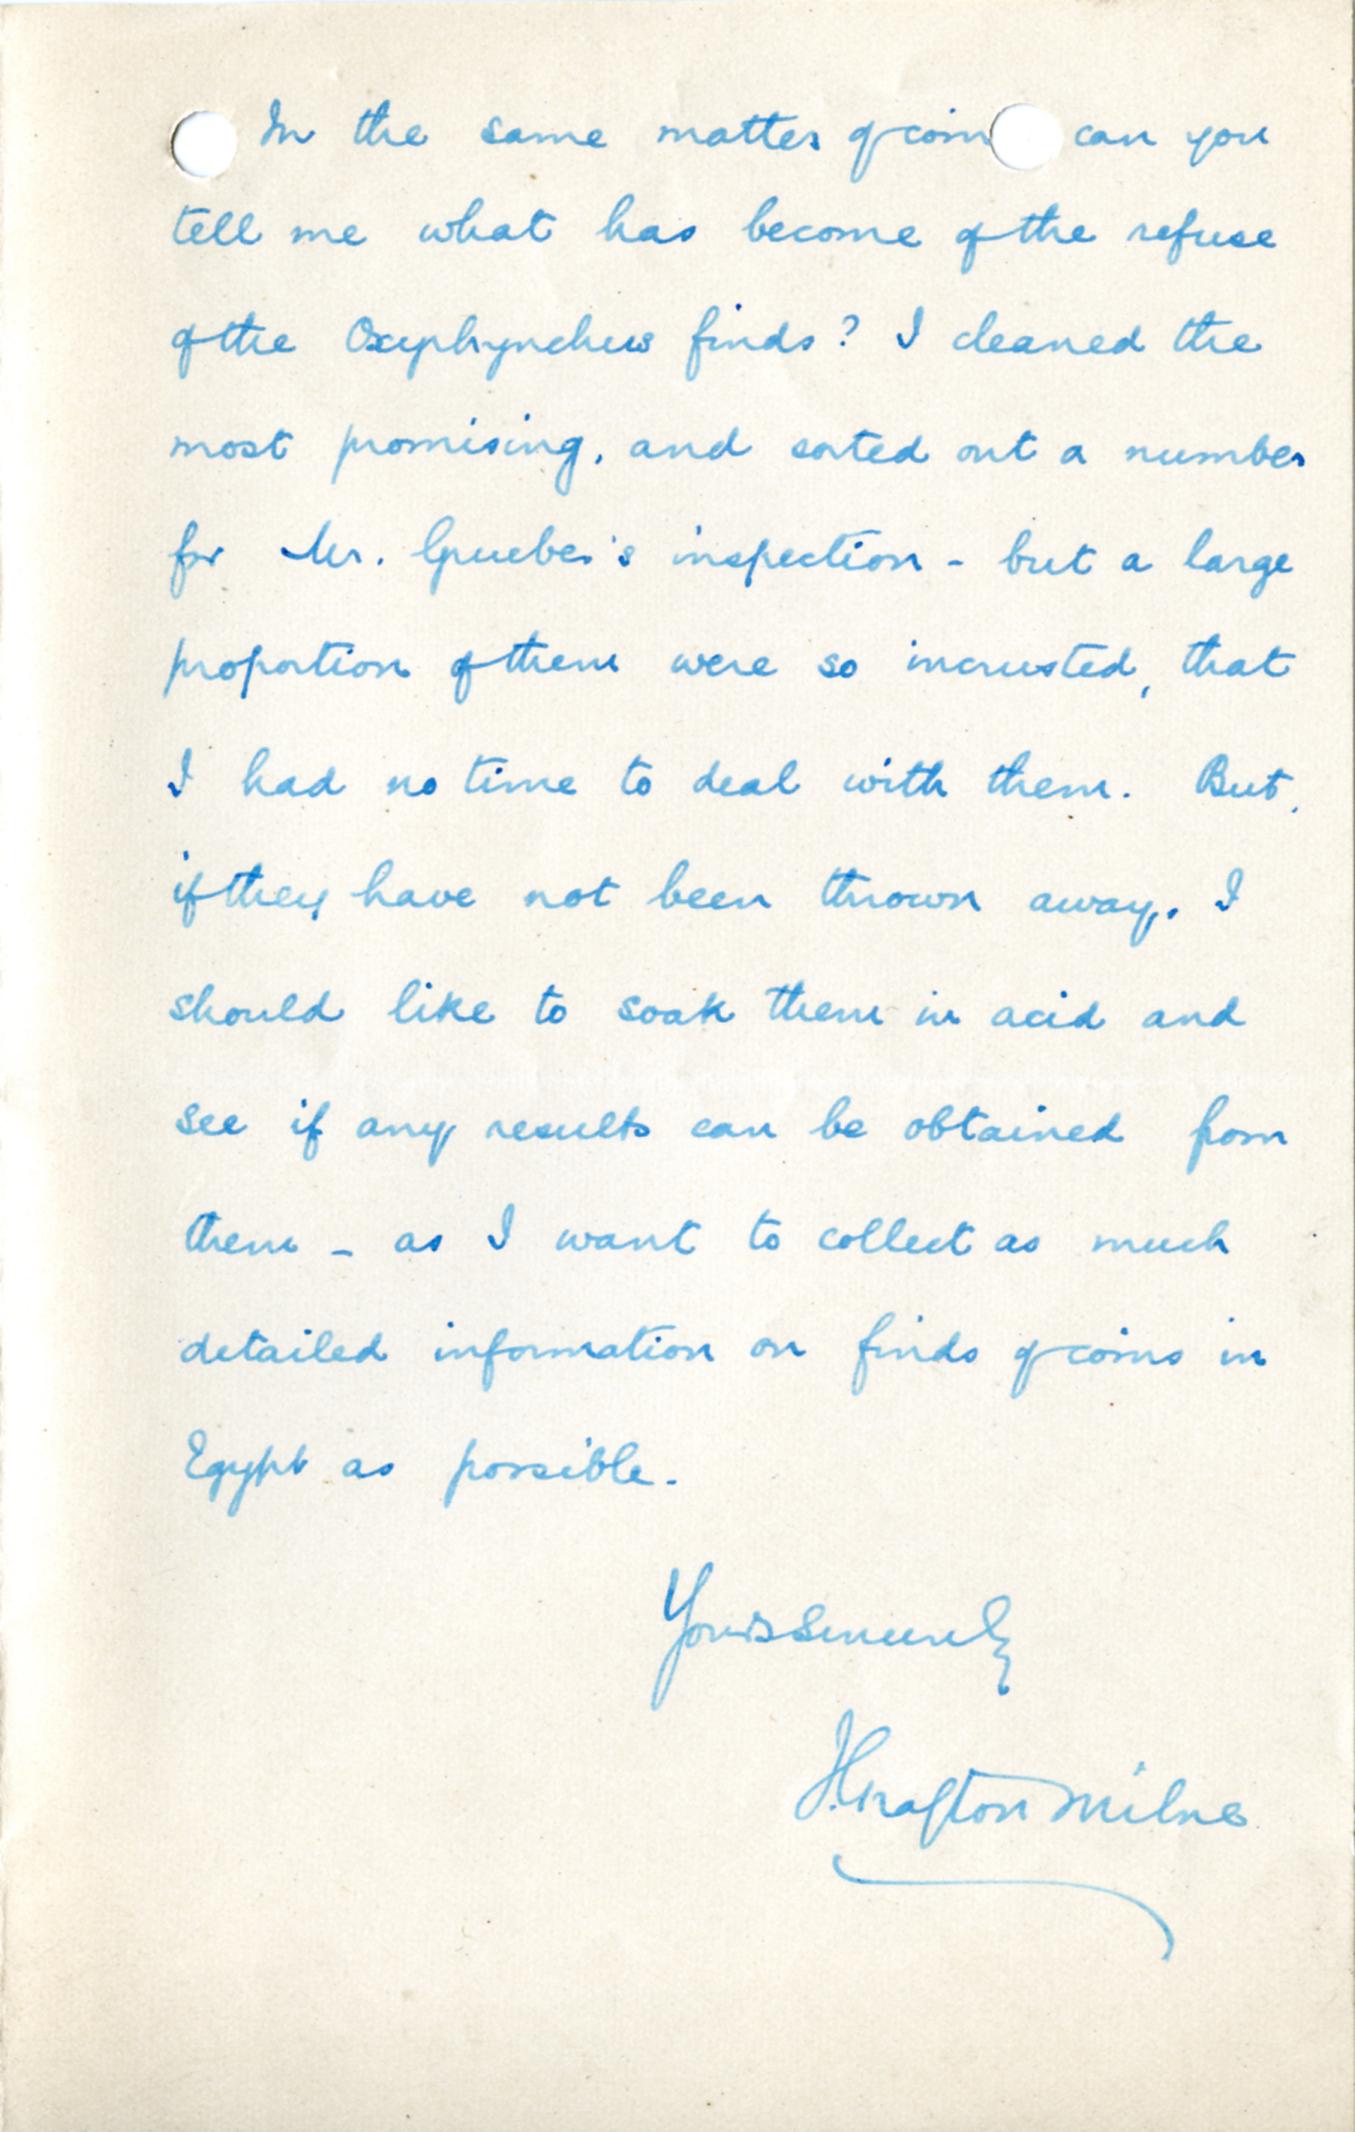 In the same matter of coin can you
tell me what has become of the refuse
of the Oxyrhynchus finds? I cleaned the
most promising, and sorted out a number
for Mr. Grueber's inspection - but a large
proportion of them were so incrusted, that
I had no time to deal with them. But,
if they have not been thrown away, I
should like to soak them in acid and
see if any results can be obtained from
them - as I want to collect as much
detailed information on finds of coins in
Egypt as possible.
Yours sincerely
J. Grafton Milne